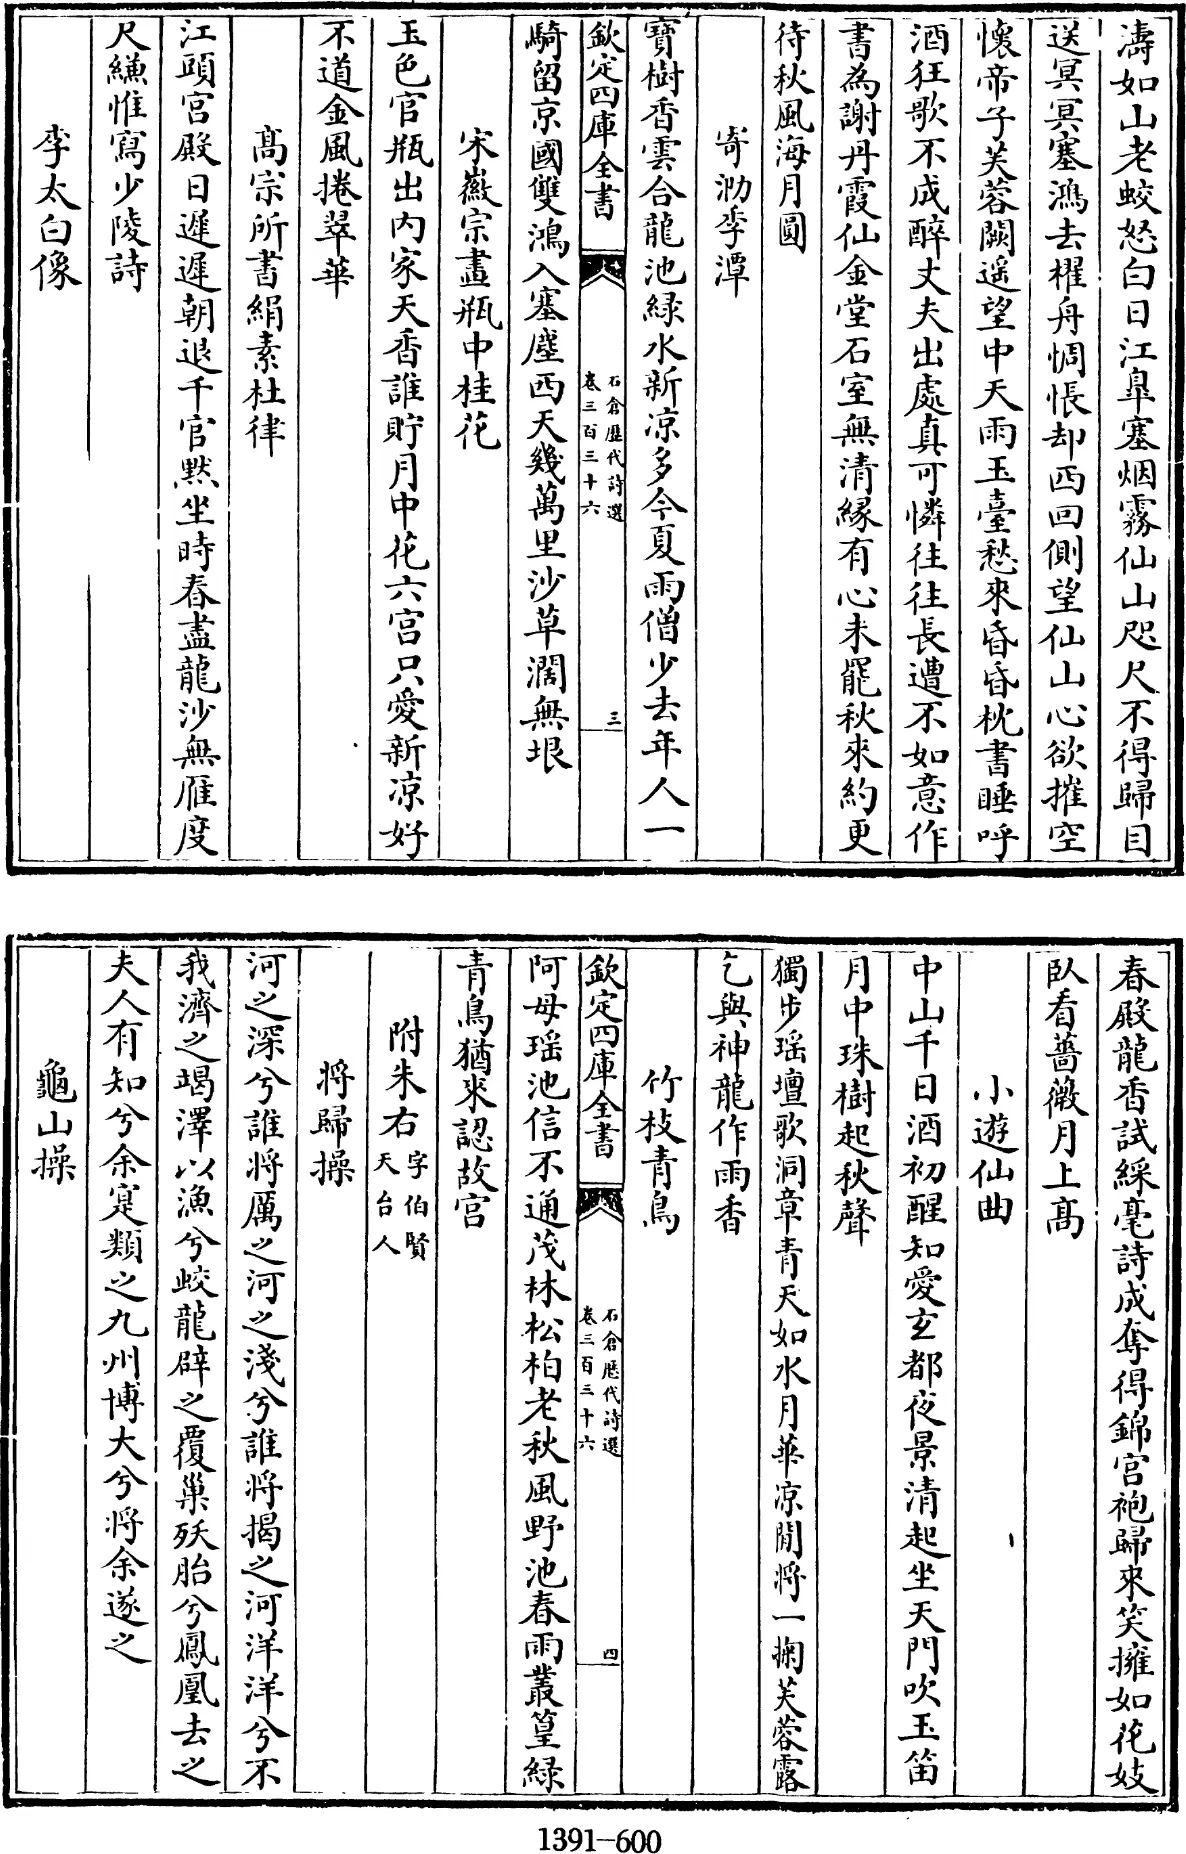 濤如山老蛟怒白日江臯塞烟霧仙山咫尺不得歸目
送冥冥塞鴻去櫂舟惆悵却西回側望仙山心欲摧空
懷帝子芙蓉闕遥望中天雨玉臺愁來昏昏枕書睡呼
酒狂歌不成醉丈夫出處真可憐往往長遭不如意作
書為謝丹霞仙金堂石室無清縁有心未罷秋來約更
待秋風海月圓
寄泐季潭
寶樹香雲合龍池緑水新凉多今夏雨僧少去年人一
欽定四庫全書
石倉歴代詩選
卷三百三十六
三
騎留京國雙鴻入塞塵西天幾萬里沙草濶無垠
宋徽宗畫瓶中桂花
玉色官瓶出内家天香誰貯月中花六宫只愛新凉好
不道金風捲翠華
髙宗所書絹素杜律
江頭宫殿日遲遲朝退千官黙坐時春盡龍沙無雁度
尺縑惟寫少陵詩
李太白像
春殿龍香試綵毫詩成奪得錦宫袍歸來笑擁如花妓
臥看薔薇月上髙
小遊仙曲
中山千日酒初醒知愛玄都夜景清起坐天門吹玉笛
月中珠樹起秋聲
獨步瑶壇歌洞章青天如水月華凉閒將一掬芙蓉露
乞與神龍作雨香
竹枝青鳥
欽定四庫全書
石倉歴代詩選
卷三百三十六
四
阿母瑶池信不通茂林松柏老秋風野池春雨叢篁緑
青鳥猶來認故宫
附朱右字伯賢
天台人
將歸操
河之深兮誰將厲之河之淺兮誰將揭之河洋洋兮不
我濟之竭澤以漁兮蛟龍辟之覆巢殀胎兮鳳凰去之
夫人有知兮余寔類之九州博大兮將余遂之
龜山操
1391-600